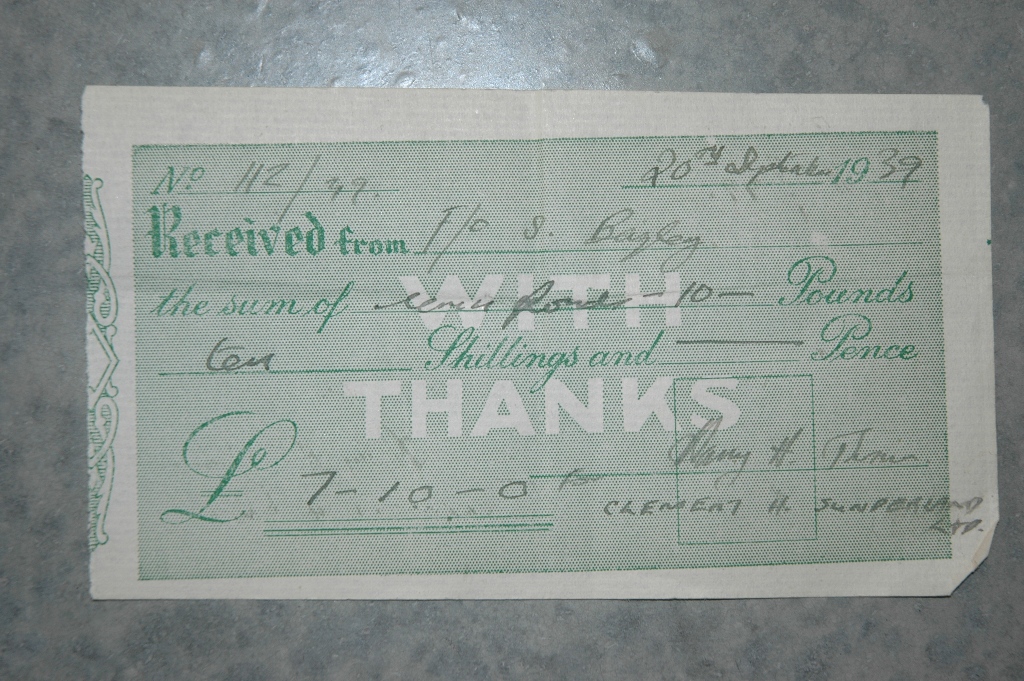 No 112/39. 20th September 1939
Received from F/o S. Bagley
the sum of seven Pounds - 10 - Pounds
ten Shillings and — Pence
WITH
THANKS
£ 7 - 10 - 0 for Harry H.
CLEMENT H. SUNDERLAND
LTD.